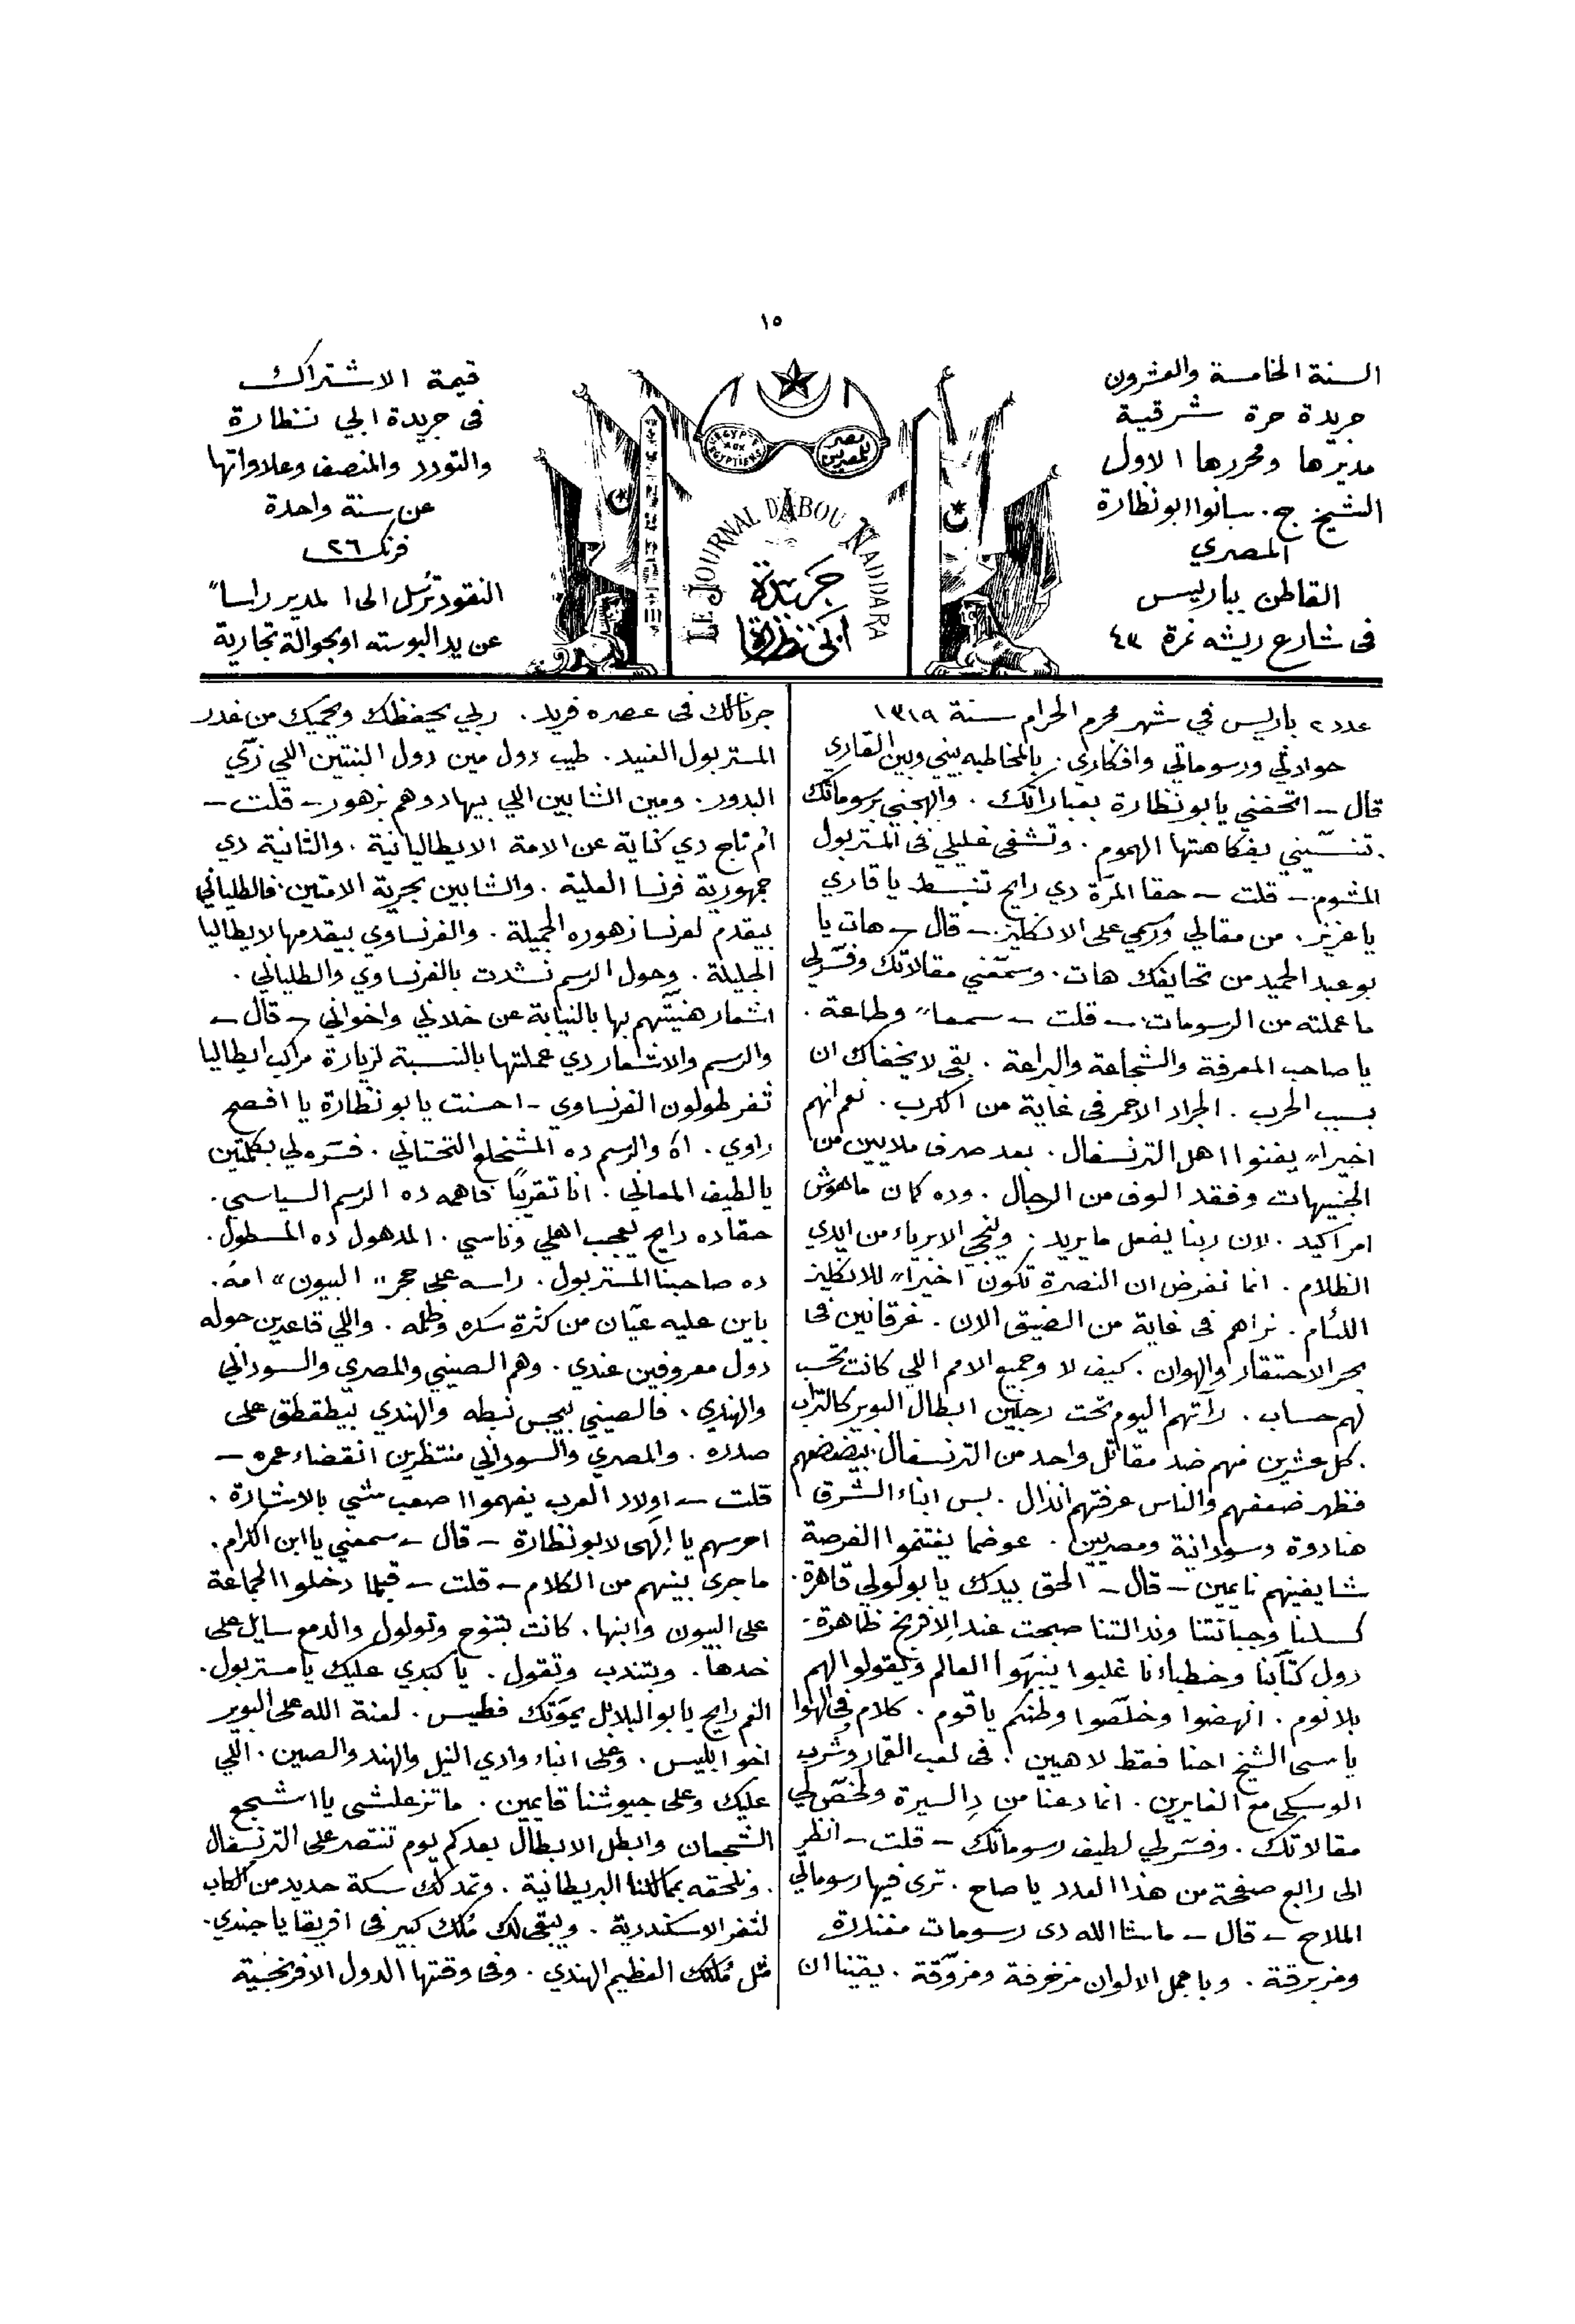 ١٥
السنة الخامسة والعشرون
جريدة حرة شرقية
مديرها ومحررها الاول
الشيخ ج. سانوا ابو نظارة
المصري
القاطن بباريس
فى شارع ريشه نمرة ٤٣
EGYPTE AUX EGYPTIENS
مصر للمصريين
LE JOURNAL D'ABOU NADDARA
جريدة
ابي نظارة
قيمة الاشتراك
فى جريدة ابي نظارة
والتودد والمنصف وعلاواتها
عن سنة واحدة
فرنك ٢٦
النقود ترسل الى المدير راسا"
عن يد البوسته او بحوالة تجارية
عدد ٢ باريس في شهر محرم الحرام سنة ١٣١٩
حوادثي ورسوماتي وافكاري. بالمخاطبه بيني وبين القاري
قال – اتحفني يابو نظارة بعباراتك. وابهجني برسوماتك
. تنسّيني بفكاهتها الهموم. وتشفى غليلي فى المستر بول
المشوم – قلت – حقا المرّة دي رايح تنبسط يا قاري
يا عزيز. من مقالي ورسمي على الانكليز – قال – هات يا
بو عبد الحميد من تحايفك هات. وسمّعني مقالاتك وفسّر لي
ما عملته من الرسومات – قلت – سمعا" وطاعة.
يا صاحب المعرفة والشجاعة والبراعة. بقى لا يخفاك ان
بسبب الحرب. الجراد الاحمر فى غاية من الكرب. نعم انهم
اخيرا" يفنوا اهل الترنسفال. بعد صرف ملايين من
الجنيهات وفقد الوف من الرجال. وده كمان ماهوش
امر اكيد. لان ربنا يفعل ما يريد. وينجي الابرياء من ايدي
الظلام. انما نفرض ان النصرة تكون اخيرا" للانكليز
اللئام. نراهم فى غاية من الضيق الان. غرقانين فى
بحر الاحتقار والهوان. كيف لا وجميع الامم اللي كانت تحسب
لهم حساب. رأتهم اليوم تحت رجلين ابطال البوير كالتراب
. كل عشرين منهم ضد مقاتل واحد من الترنسفال
فظهر ضعفهم والناس عرفتهم انذال. بس ابناء الشرق
هنادوة وسودانية ومصريين. عوضما يغتنموا الفرصة
شايفينهم نايمين – قال – الحق بيدك يا بولولي قاهرة.
كسلنا وجباتنا وندالتنا صبحت عند الافرنج ظاهرة.
دول كتّابنا وخطباءنا غلبوا ينبهّوا العالم ويقولوا لهم
بلا نوم. انهضوا وخلّصوا وطنكم يا قوم. كلام فى الهوا
يا سى الشيخ احنا فقط لاهيين. فى لعب القمار وشرب
الوسكى مع الغايرين. انما دعنا من دِ السيرة ولخصّ لي
مقالاتك. وفسّر لي لطيف رسوماتك – قلت – انظر
الى رابع صفحة من هذا العدد يا صاح. ترى فيها رسوماتي
الملاح – قال – ما شاالله دى رسومات مغندرة
ومزبرقة. وباجمل الالوان مزخرفة ومزوّقة. يقينا ان
جرنالك فى عصره فريد. ربي يحفظك ويحميك من غدر
المستر بول العنيد. طيب دول مين دول البنتين اللي زيّ
البدور. ومين الشابين اللي بيهادوهم بزهور – قلت –
ام تاج دي كناية عن الامة الايطاليانية. والثانية دي
جمهورية فرنسا العلية. والشابين بحرية الامتين. فالطلياني
بيقدم لفرنسا زهوره الجميلة. والفرنساوي بيقدمها لايطاليا
الجليلة. وحول الرسم نشدت بالفرنساوي والطلياني.
اشعار هنيتّهم بها بالنيابة عن خلاني واخواني – قال –
والرسم والاشعار دي عملتها بالنسبة لزيارة مراكب ايطاليا
ثغر طولون الفرنساوي – احسنت يابو نظارة يا افصح
راوي. اه والرسم ده المشخلع التحتاني. فسّره لي بكلمتين
يا لطيف المعاني. انا تقريبًا فاهمه ده الرسم السياسي.
حقا ده رايح يعجب اهلي وناسي. المدهول ده المسطول.
ده صاحبنا المستر بول. راسه على حجر "البيون" امه.
باين عليه عيّان من كثرة سكره وظلمه. واللي قاعدين حوله
دول معروفين عندي. وهم الصيني والمصري والسوداني
والهندي. فالصيني بيجس نبطه والهندي بيطقطق على
صدره. والمصري والسوداني منتظرين انقضاء عمره –
قلت – اولاد العرب يفهموا صعب شي بالاشارة.
احرسهم يا إلهى لابو نظارة – قال – سمعني يا ابن الكرام.
ما جرى بينهم من الكلام – قلت – قبلما دخلوا الجماعة
على البيون وابنها. كانت بتنوح وتولول والدمع سايل على
خدها. وبتندب وتقول. يا كبدي عليك يا مستر بول.
الغم رايح يابو البلابل يموّتك فطيس. لعنة الله على البوير
اخو ابليس. وعلى ابناء وادي النيل والهند والصين. اللي
عليك وعلى جيوشنا قايمين. ما تزعلشى يا اشجع
الشجعان وابطل الابطال بعد كم يوم تنتصر على الترنسفال
. وتلحقه بممالكنا البريطانية. وتمد لك سكة حديد من الكاب
لثغر الاسكندرية. ويبقى لك مُلك كبير فى افريقا يا جندي.
مثل مُلكك العظيم الهندي. وفى وقتها الدول الافرنجية